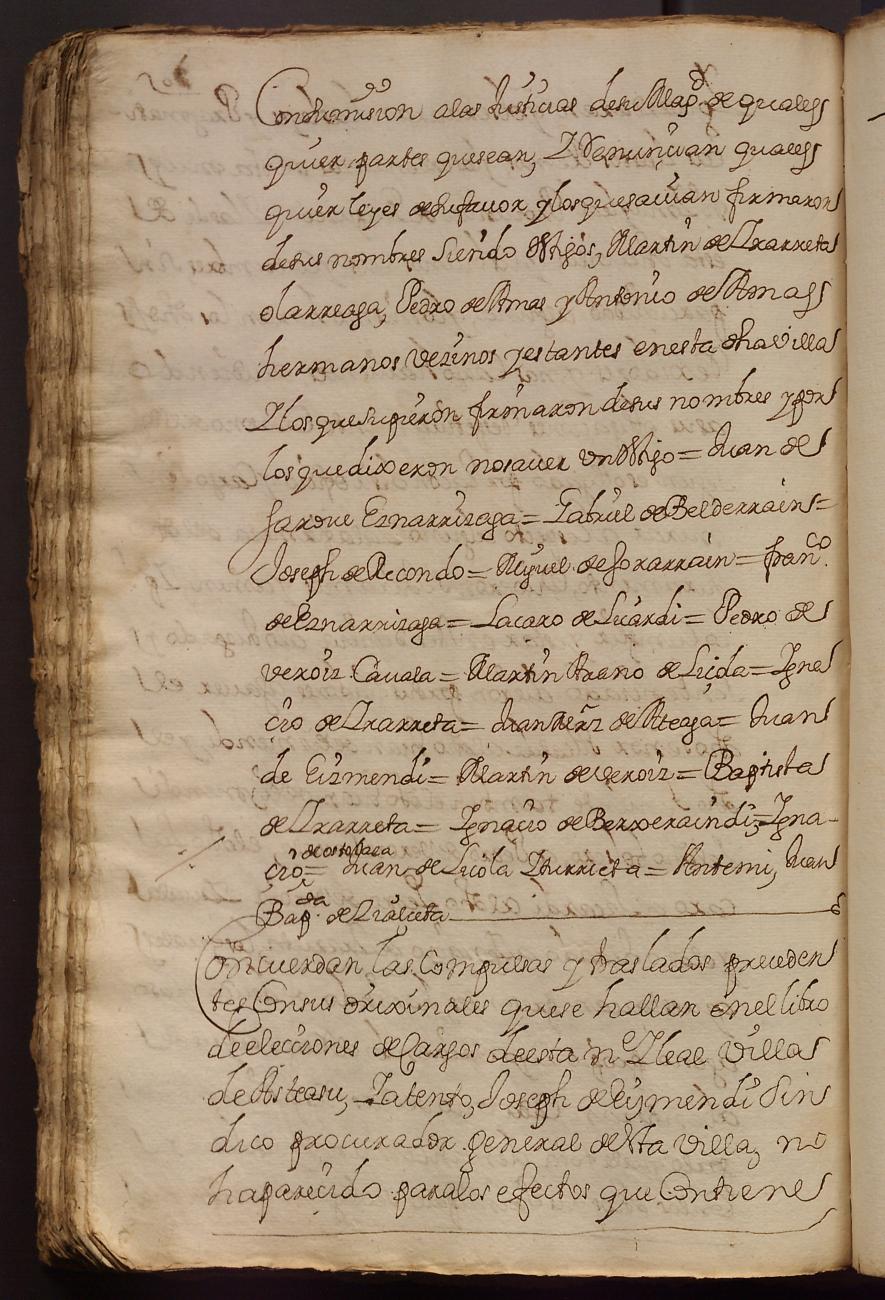 Consumision alas Justicias desu Magd de quales
quier partes quesean, Y Renunçian quales
quier leyes desufauor ylosquesauian firmaron
desus nombres siendo ttigos, Martin de Yrarreta
olarreaga, Pedro de Amas y Antonio de Amas
hermanos vezinos yestantes enesta dha villa
Ylos quesupieron firmaron desus nombres ypor
los quedixeron nosauer vn ttigo = Juan de
Eznarrizaga = Gabriel de Belderrain =
Joseph de Recondo = Miguel de sorarrain = franco
de Eznarrizaga = Lacaro de Licardi = Pedro de
veroiz Cauala = Martin Arano de = Igna
çio de Yrarreta = Juan de Ateaga = Juan
de Eizmendi = Martin de veroiz = Baptista
de Yrarreta = Ignaçio de Berroeraindi = Igna-
de
çio = Juan de Licola Yturrieta = Antemi, Juan
Bapta de
Concuerdan las Compulsas y traslados preceden
tes Consus orixinales quese hallan enellibro
deelecciones deCargos deesta n e Yleal Villa
de Asteasu, Yatento, Joseph de Eizmendi Sin
dico procurador general desta villa, me
haparecido paralos efectos que Contiene